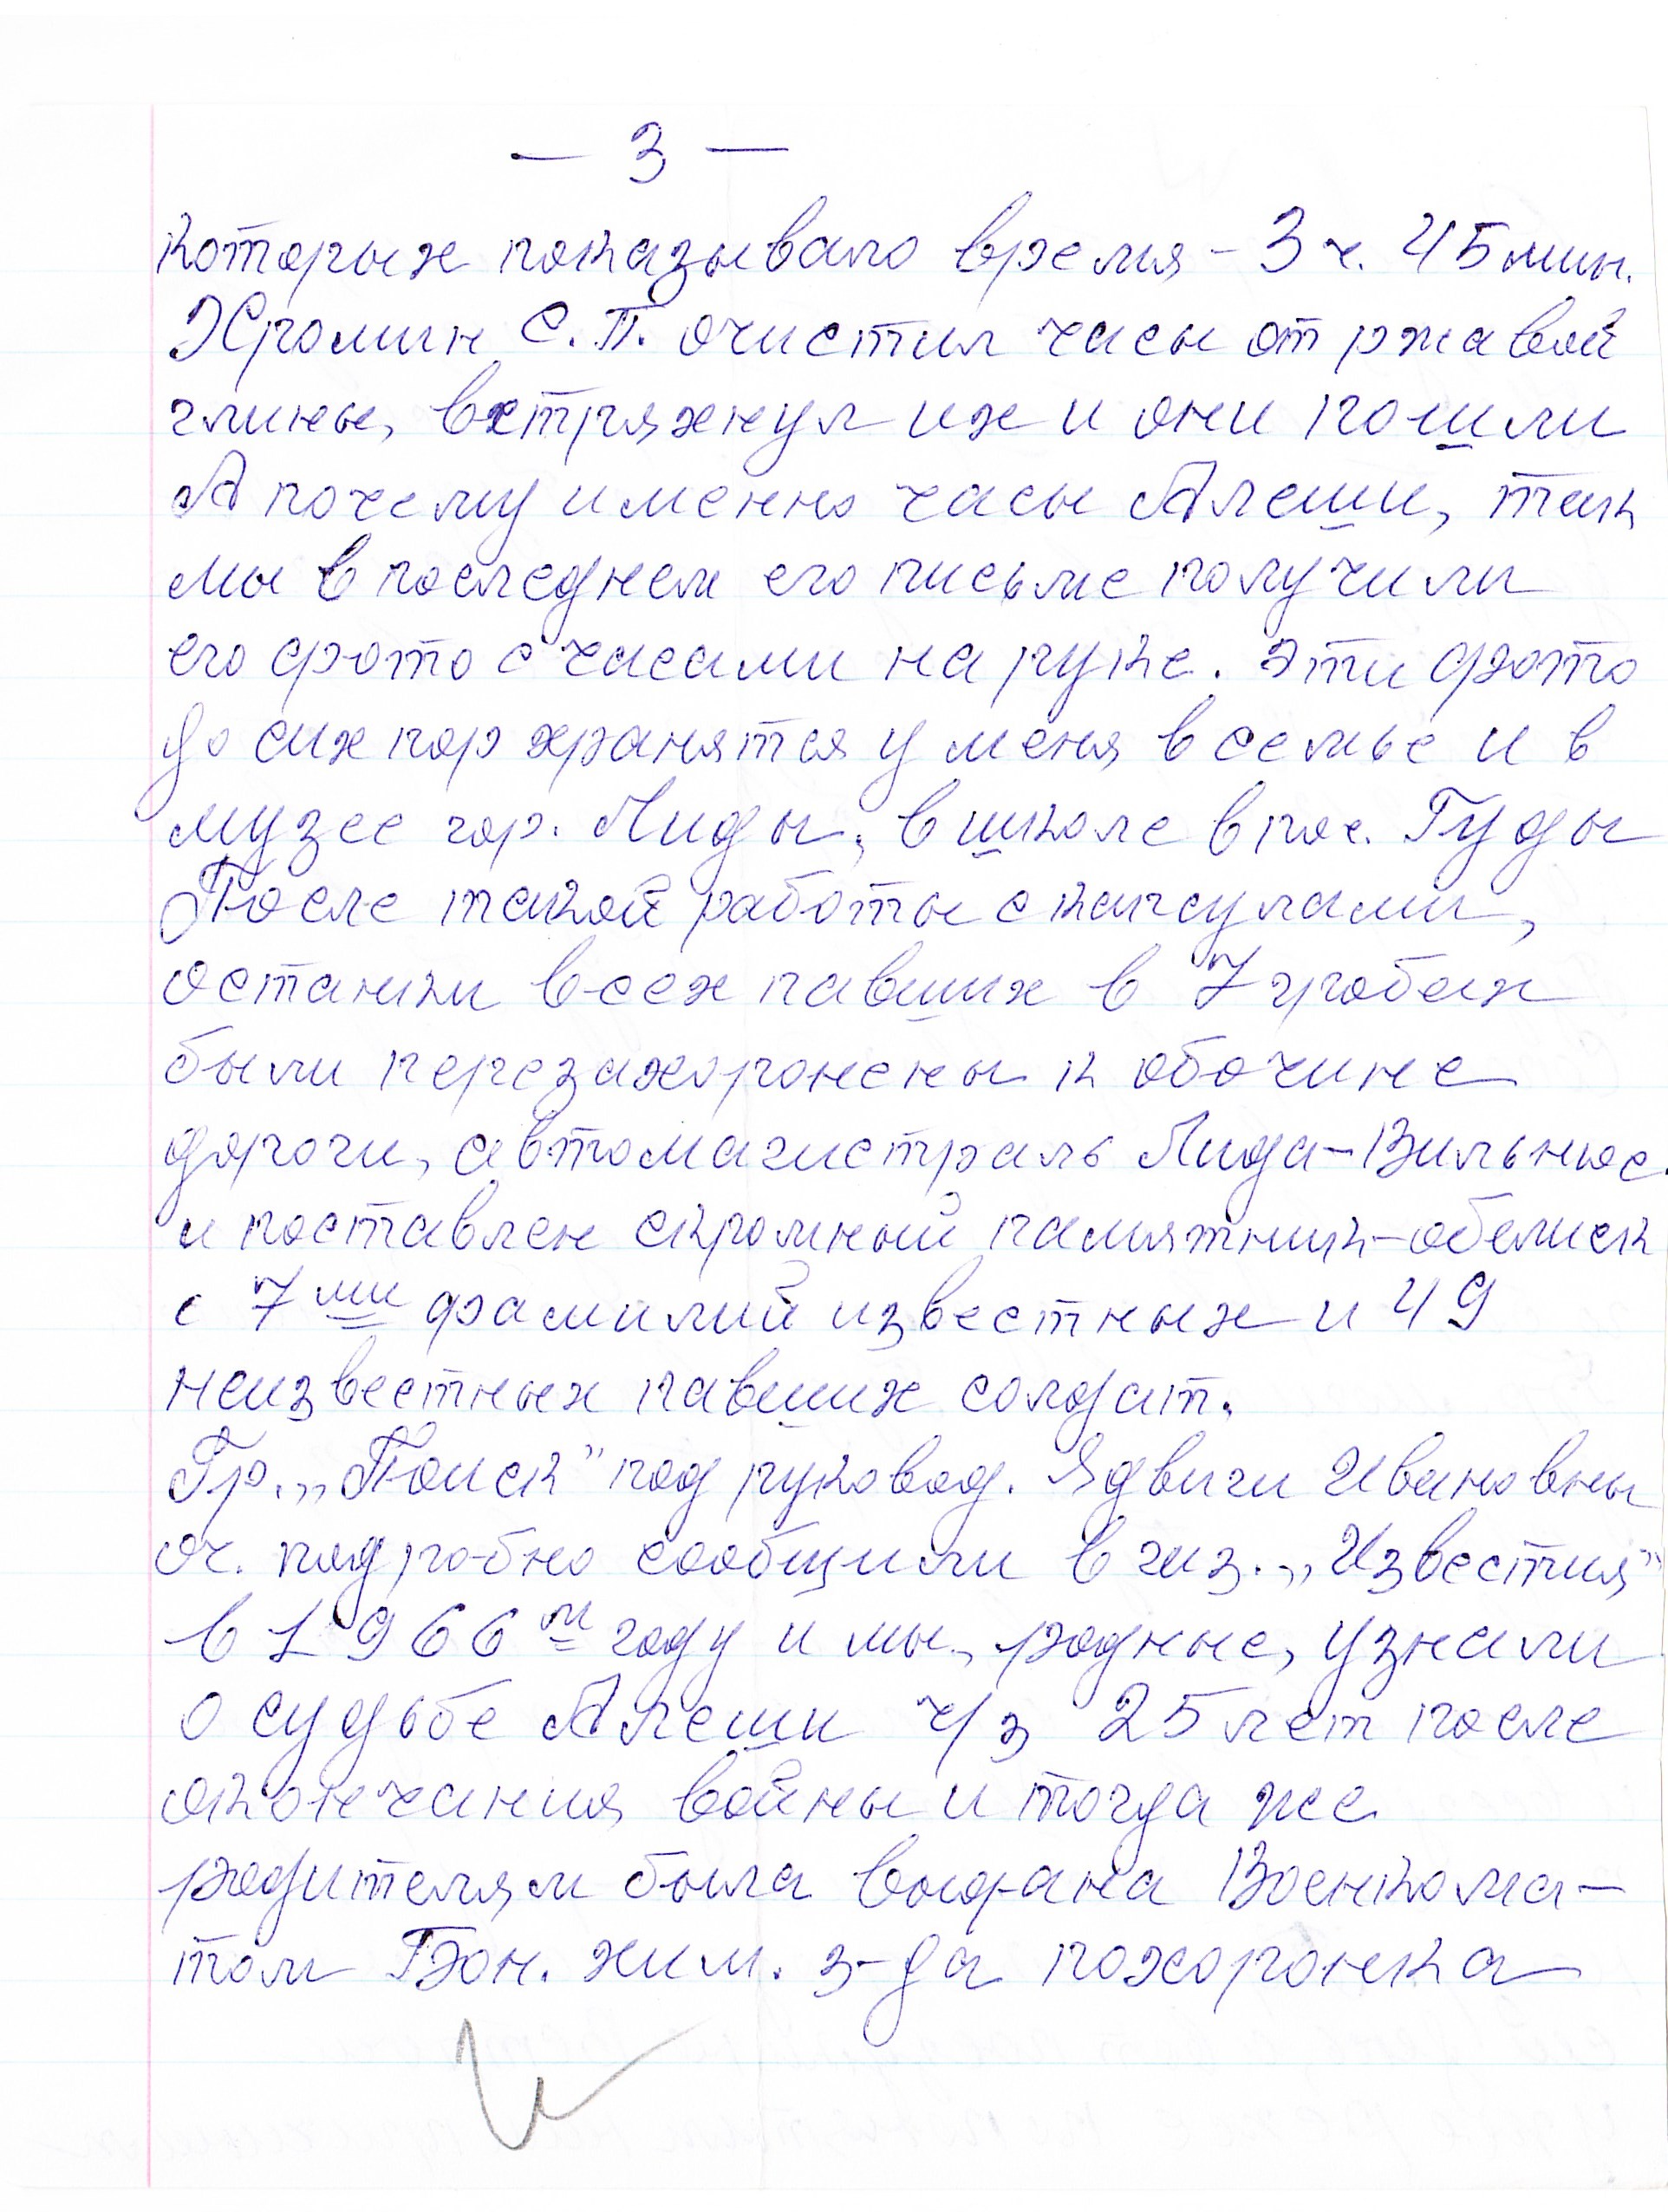 — 3 —
которых показывало время – 3 ч. 45 мин.
Хромин С.П. очистил часы от ржавой
глины, встряхнул их и они пошли
А почему именно часы Алеши, так
мы в последнем его письме получили
его фото с часами на руке. Эти фото
до сих пор хранятся у меня в семье и в
музее гор. Лиды, в школе в пос. Гуды
После такой работы с капсулами,
останки всех павших в 7 гробах
были перезахоронены к обочине
дороги, автомагистраль Лида–Вильнюс.
и поставлен скромный памятник–обелиск
с 7ми фамилий известных и 49
неизвестных павших солдат.
Гр. „Поиск" под руковод. Ядвиги Ивановны
оч. подробно сообщили в газ. „Известия"
в 1966м году и мы, родные, узнали
о судьбе Алеши ч/з 25 лет после
окончания войны и тогда же
родителям была выдана Военкома–
том Бон. хим. з-да похоронка